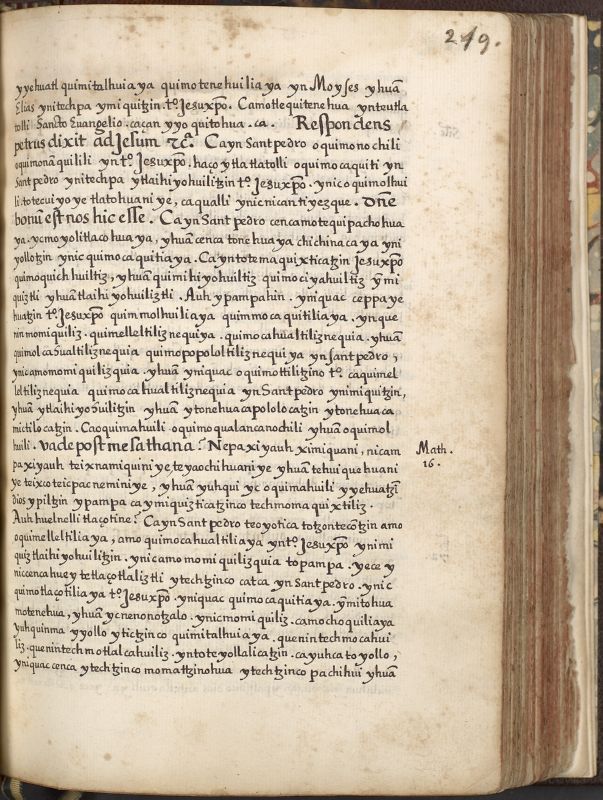 249.
yyehuatl quimitalhuiaya quimotenehuiliaya yn Moyses yhuā
Elias ynitechpa ymiquitzin. tº. Jesuxp̄o. Camotlequitenehua ynteutla
tolli Sancto Euangelio. cacan yyo quitohua. ca. Respondens
petrus dixit ad Jesum ꝛcª. Cayn Sant pedro oquimonochili
oquimonānquilili yn tº. Jesuxp̄o. haço ytlatlatolli oquimocaquiti yn
Sant pedro ynitechpa ytlaihiyohuilitzin tº. Jesuxp̄o. ynic oquimolhui
li. totecuiyo ye tlatohuaniye, caqualli ynic nican tiyezque. Dn̄e
bonū est nos hic esse. Cayn Sant pedro cencamotequipachohua
ya. ycmoyolitlacohuaya, yhuā cenca tonehuaya chichinacaya yni
yollotzin ynic quimocaquitiaya. Cayntotemaquixticatzin Jesuxp̄o
quimoquichhuiltiz, yhuā quimihiyohuiltiz quimociyahuiltiz ȳmi
quiztli yhuā tlaihiyohuiliztli. Auh ypampahin. yniquac ceppa ye
huatzin tº. Jesuxp̄o quimmolhuiliaya quimmocaquitiliaya. ynque
nin momiquiliz. quimellelti​liznequiya. quimocahualtiliznequia. yhuā
quimolcahualtiliznequia quimopopololtiliznequiya yn sant pedro,
ynicamo momiquilizquia. yhuā yniquac oquimottilitzino tº. caquimel
leltiliznequia quimocahualtiliznequia yn Sant pedro ynimiquitzin,
yhuā ytlaihiyohuilitzin yhuā ytonehuacapololocatzin ytonehuaca
mictilocatzin. Caoquimahuili oquimoqualancanochili yhuā oquimol
huili. vade post me sathana? Nepa xiyauh ximiquani, nicam
pa xiyauh teixnamiquiniye teyaochihuaniye yhuā tehuiquehuani
ye teixco teicpac neminiye, yhuā yuhqui yc oquimahuili yyehuatzī
dios ypiltzin ypampa caymiquizticatzinco techmomaquixtiliz.
Auh huelnelli tlaçotine? Cayn Sant pedro teoyotica totzontecōtzin amo
oquimelleltiliaya, amo quimocahualtiliaya yn tº. Jesuxp̄o ynimi
quiz tlaihiyohuilitzin. ynicamo momiquilizquia topampa. yece y
niccenca huey tetlaçotlaliztli ytechtzinco catca yn Sant pedro. ynic
quimotlaçotiliaya tº. Jesuxp̄o. yniquac quimocaquitiaya. ȳmitohua
motenehua, yhuā ycnenonotzalo. ynic momiquiliz. camochoquiliaya
yuhquinma yyollo yticitzinco quimitalhuiaya. quenin techmocahui
liz. quenin techmotlalcahuiliz. yntoteyollalicatzin. cayuhca toyollo,
yniquac cenca ytechtzinco momatzinohua ytechtzinco pachihui yhuā
Math.
16.